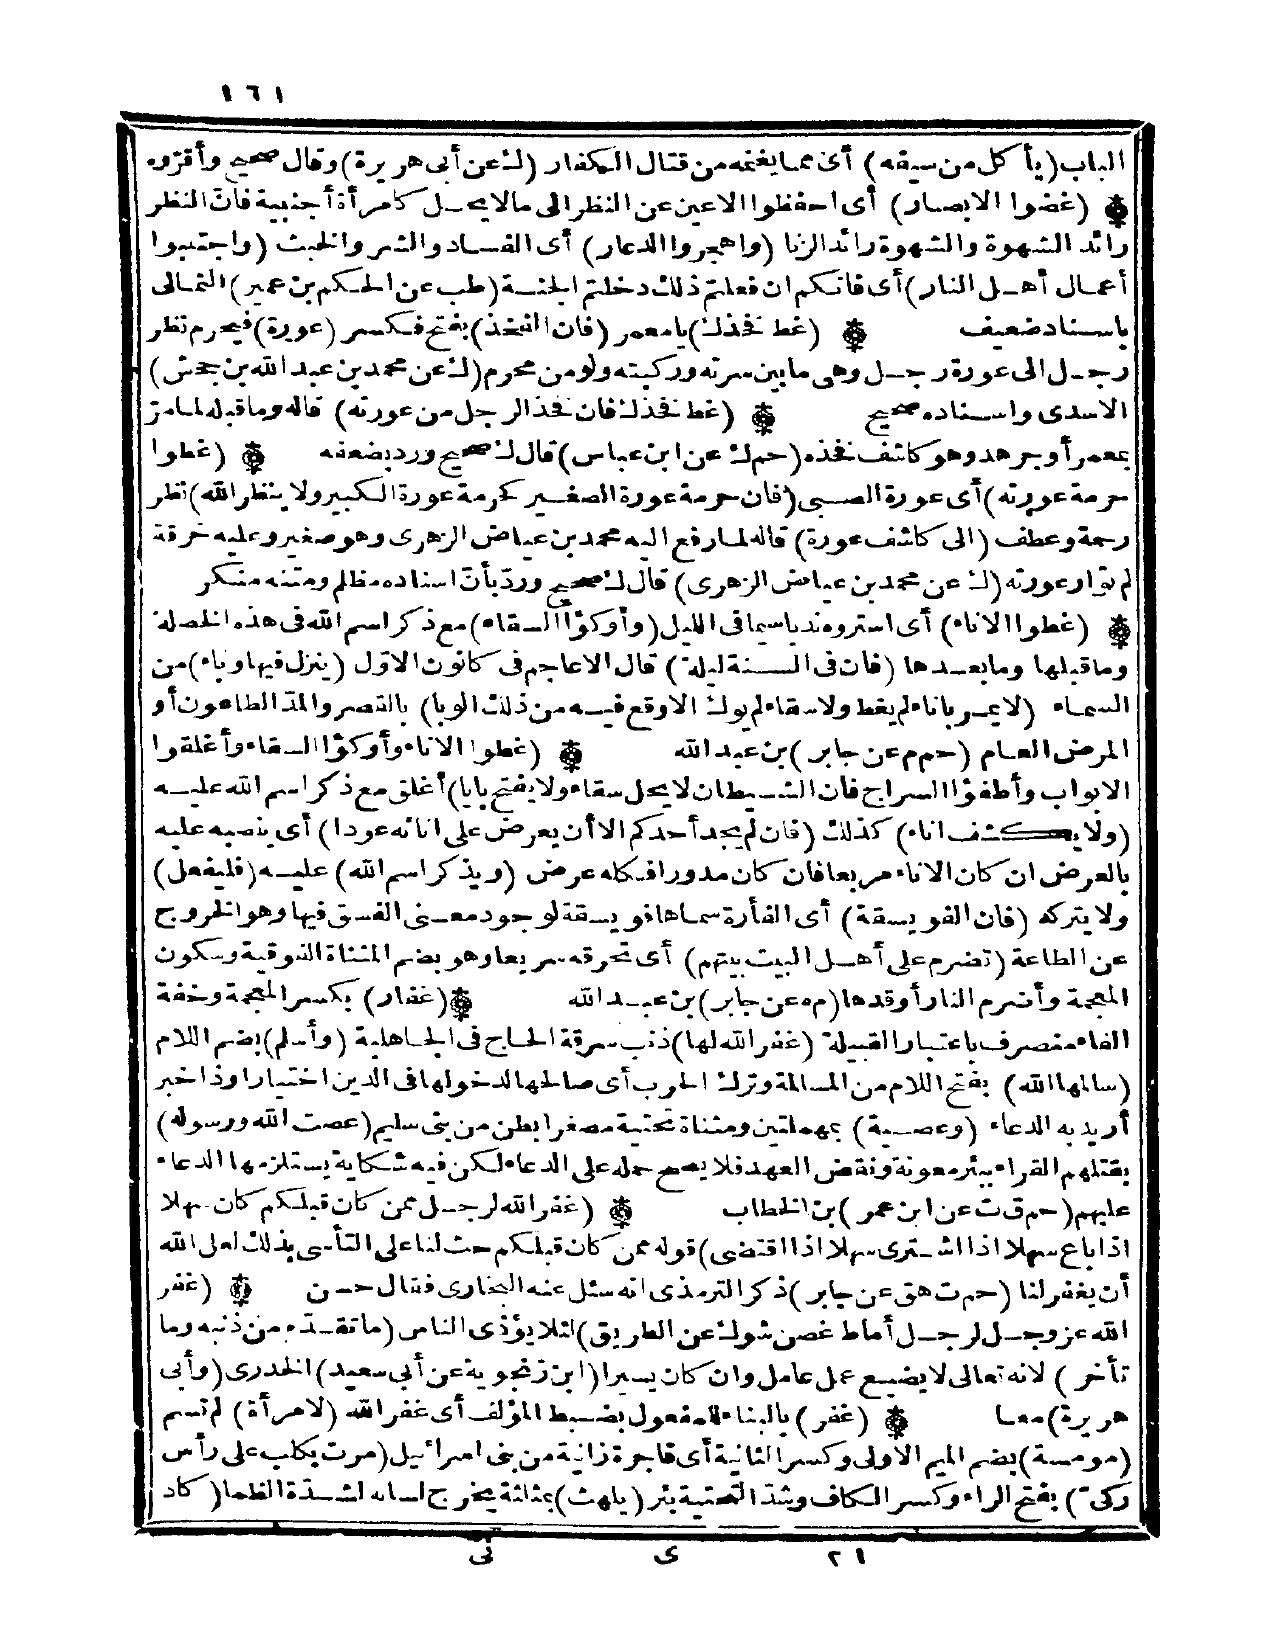 ١٦١
الباب (يأكل من سيفه) أى مما يغنمه من قتال الكفار (ك عن أبى هريرة) وقال صحيح وأقروه
۞ (غضوا الابصار) أى احفظوا الاعين عن النظر الى مالا يحل كامرأة أجنبية فان النظر
رائد الشهوة والشهوة رائد الزنا (واهجروا الدعار) أى الفساد والشر والخبث (واجتنبوا
أعمال أهل النار) أى فانكم ان فعلتم ذلك دخلتم الجنة (طب عن الحكم بن عمير) الثمالى
باسناد ضعيف ۞ (غط فخذك) يا معمر (فان الفخذ) بفتح فكسر (عورة) فيحرم نظر
رجل الى عورة رجل وهى ما بين سرته وركبته ولو من محرم (ك عن محمد بن عبد الله بن جحش)
الاسدى واسناده صحيح ۞ (غط فخذك فان فخذ الرجل من عورته) قاله وما قبله لما مر
بمعمر أو جرهد وهو كاشف فخذه (حم ك عن ابن عباس) قال ك صحيح ورد بضعفه ۞ (غطوا
حرمة عورته) أى عورة الصبى (فان حرمة عورة الصغير كحرمة عورة الكبير ولا ينظر الله) نظر
رحمة وعطف (الى كاشف عورة) قاله لما رفع اليه محمد بن عياض الزهرى وهو صغير وعليه خرقة
لم توار عورته (ك عن محمد بن عياض الزهرى) قال ك صحيح ورد بأن اسناده مظلم ومتنه منكر
۞ (غطوا الاناء) أى استروه ندبا سيما فى الليل (وأوكؤا السقاء) مع ذكر اسم الله فى هذه الخصلة
وما قبلها وما بعدها (فان فى السنة ليلة) قال الاعاجم فى كانون الاول (ينزل فيها وباء) من
السماء (لا يمر باناء لم يغط ولا سقاء لم يوك الا وقع فيه من ذلك الوبا) بالقصر والمد الطاعون أو
المرض العام (حم م عن جابر) بن عبد الله ۞ (غطوا الاناء وأوكؤا السقاء وأغلقوا
الابواب وأطفؤا السراج فان الشيطان لا يحل سقاء ولا يفتح بابا) أغلق مع ذكر اسم الله عليه
(ولا يكشف اناء) كذلك (فان لم يجد أحدكم الا أن يعرض على انائه عودا) أى ينصبه عليه
بالعرض ان كان الاناء مربعا فان كان مدورا فكله عرض (ويذكر اسم الله) عليه (فليفعل)
ولا يتركه (فان الفويسقة) أى الفأرة سماها فويسقة لوجود معنى الفسق فيها وهو الخروج
عن الطاعة (تضرم على أهل البيت بيتهم) أى تحرقه سريعا وهو بضم المثناة الفوقية وسكون
المعجمة وأضرم النار أوقدها (م ه عن جابر) بن عبد الله ۞ (غفار) بكسر المعجمة وخفة
الفاء منصرف باعتبار القبيلة (غفر الله لها) ذنب سرقة الحاج فى الجاهلية (وأسلم) بضم اللام
(سالمها الله) بفتح اللام من المسالمة وترك الحرب أى صالحها لدخولها فى الدين اختيارا وذا خبر
أريد به الدعاء (وعصية) بمهملتين ومثناة تحتية مصغرا بطن من بنى سليم (عصت الله ورسوله)
بقتلهم القراء ببئر معونة ونقض العهد فلا يصح حمله على الدعاء لكن فيه شكاية يستلزمها الدعاء
عليهم (حم ق ت عن ابن عمر) بن الخطاب ۞ (غفر الله لرجل ممن كان قبلكم كان سهلا
اذا باع سهلا اذا اشترى سهلا اذا اقتضى) قوله ممن كان قبلكم حث لنا على التأسى بذلك لعل الله
أن يغفر لنا (حم ت هق عن جابر) ذكر الترمذى انه سئل عنه البخارى فقال حسن ۞ (غفر
الله عز وجل لرجل أماط غصن شوك عن الطريق) لئلا يؤذى الناس (ما تقدم من ذنبه وما
تأخر) لانه تعالى لا يضيع عمل عامل وان كان يسيرا (ابن زنجوية عن أبى سعيد) الخدرى (وأبى
هريرة) معا ۞ (غفر) بالبناء للمفعول بضبط المؤلف أى غفر الله (لامرأة) لم تسم
(مومسة) بضم الميم الاولى وكسر الثانية أى فاجرة زانية من بنى اسرائيل (مرت بكلب على رأس
ركى) بفتح الراء وكسر الكاف وشد التحتية بئر (يلهث) بمثلثة يخرج لسانه لشدة الظما (كاد
٢١ ى نى